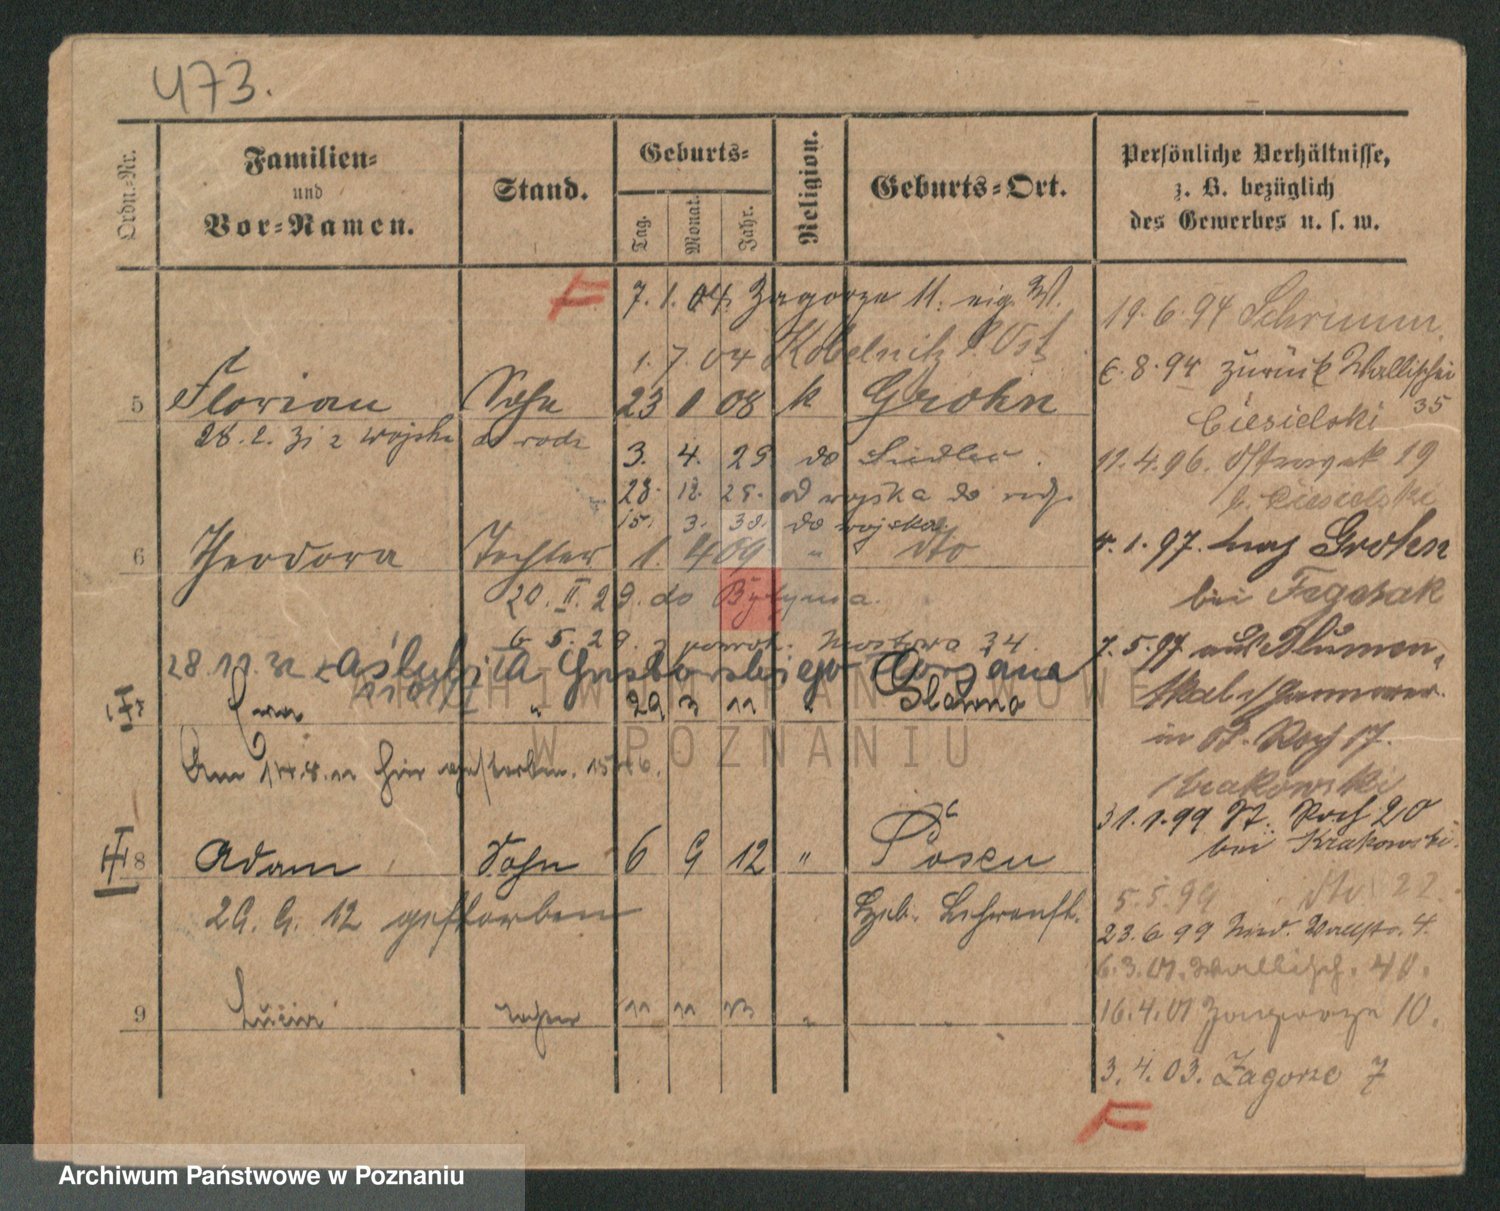 473.
Ordn.-Nr.
Familien-
und
Vor-Namen.
Stand.
Geburts-
Tag.
Monat.
Jahr.
Religion.
Geburts-Ort.
Persönliche Verhältnisse,
z. B. bezüglich
des Gewerbes u. s. w.
F 7. 1. 04. Zagorze 11. eig. W.
1. 7. 04 Kobelnitz P. Ost
5 Florian Sohn 23 1 08 k Grohn
28. 2. 31 z wojska do rodz
3. 4. 29 do Siedlec.
28. 12. 29. od wojska do rodz.
15. 3. 30. do wojska.
6 Theodora Tochter 1. 4 09 " dto
20. II. 29. do Bytynia.
6. 5. 29. z powrot. Mostowa 34.
28. 11. 32
7 " 29 3 11 " Glowno
Am 14. 8. 11 hier gestorben.
8 Adam Sohn 6 9 12 " Posen
29. 9. 12 gestorben
Geb. Lehranst.
9 Tochter 11 11 13 "
19. 6. 94 Schrimm
6. 8. 94 zurück Wallischei
35
Ciesielski
11. 4. 96. 19
b. Ciesielski
5. 1. 97. nach Grohn
bei
7. 5. 97 aus Blumen-
in St. Roch 17.
Krakowski
31. 1. 99 St. Roch 20
bei Krakowski.
5. 5. 99 dto 22.
23. 6. 99 Wallstr. 4.
6. 3. 01. Wallisch. 40.
16. 4. 01 Zagorze 10.
3. 4. 03. Zagorze 7
F
ARCHIWUM PAŃSTWOWE
W POZNANIU
Archiwum Państwowe w Poznaniu